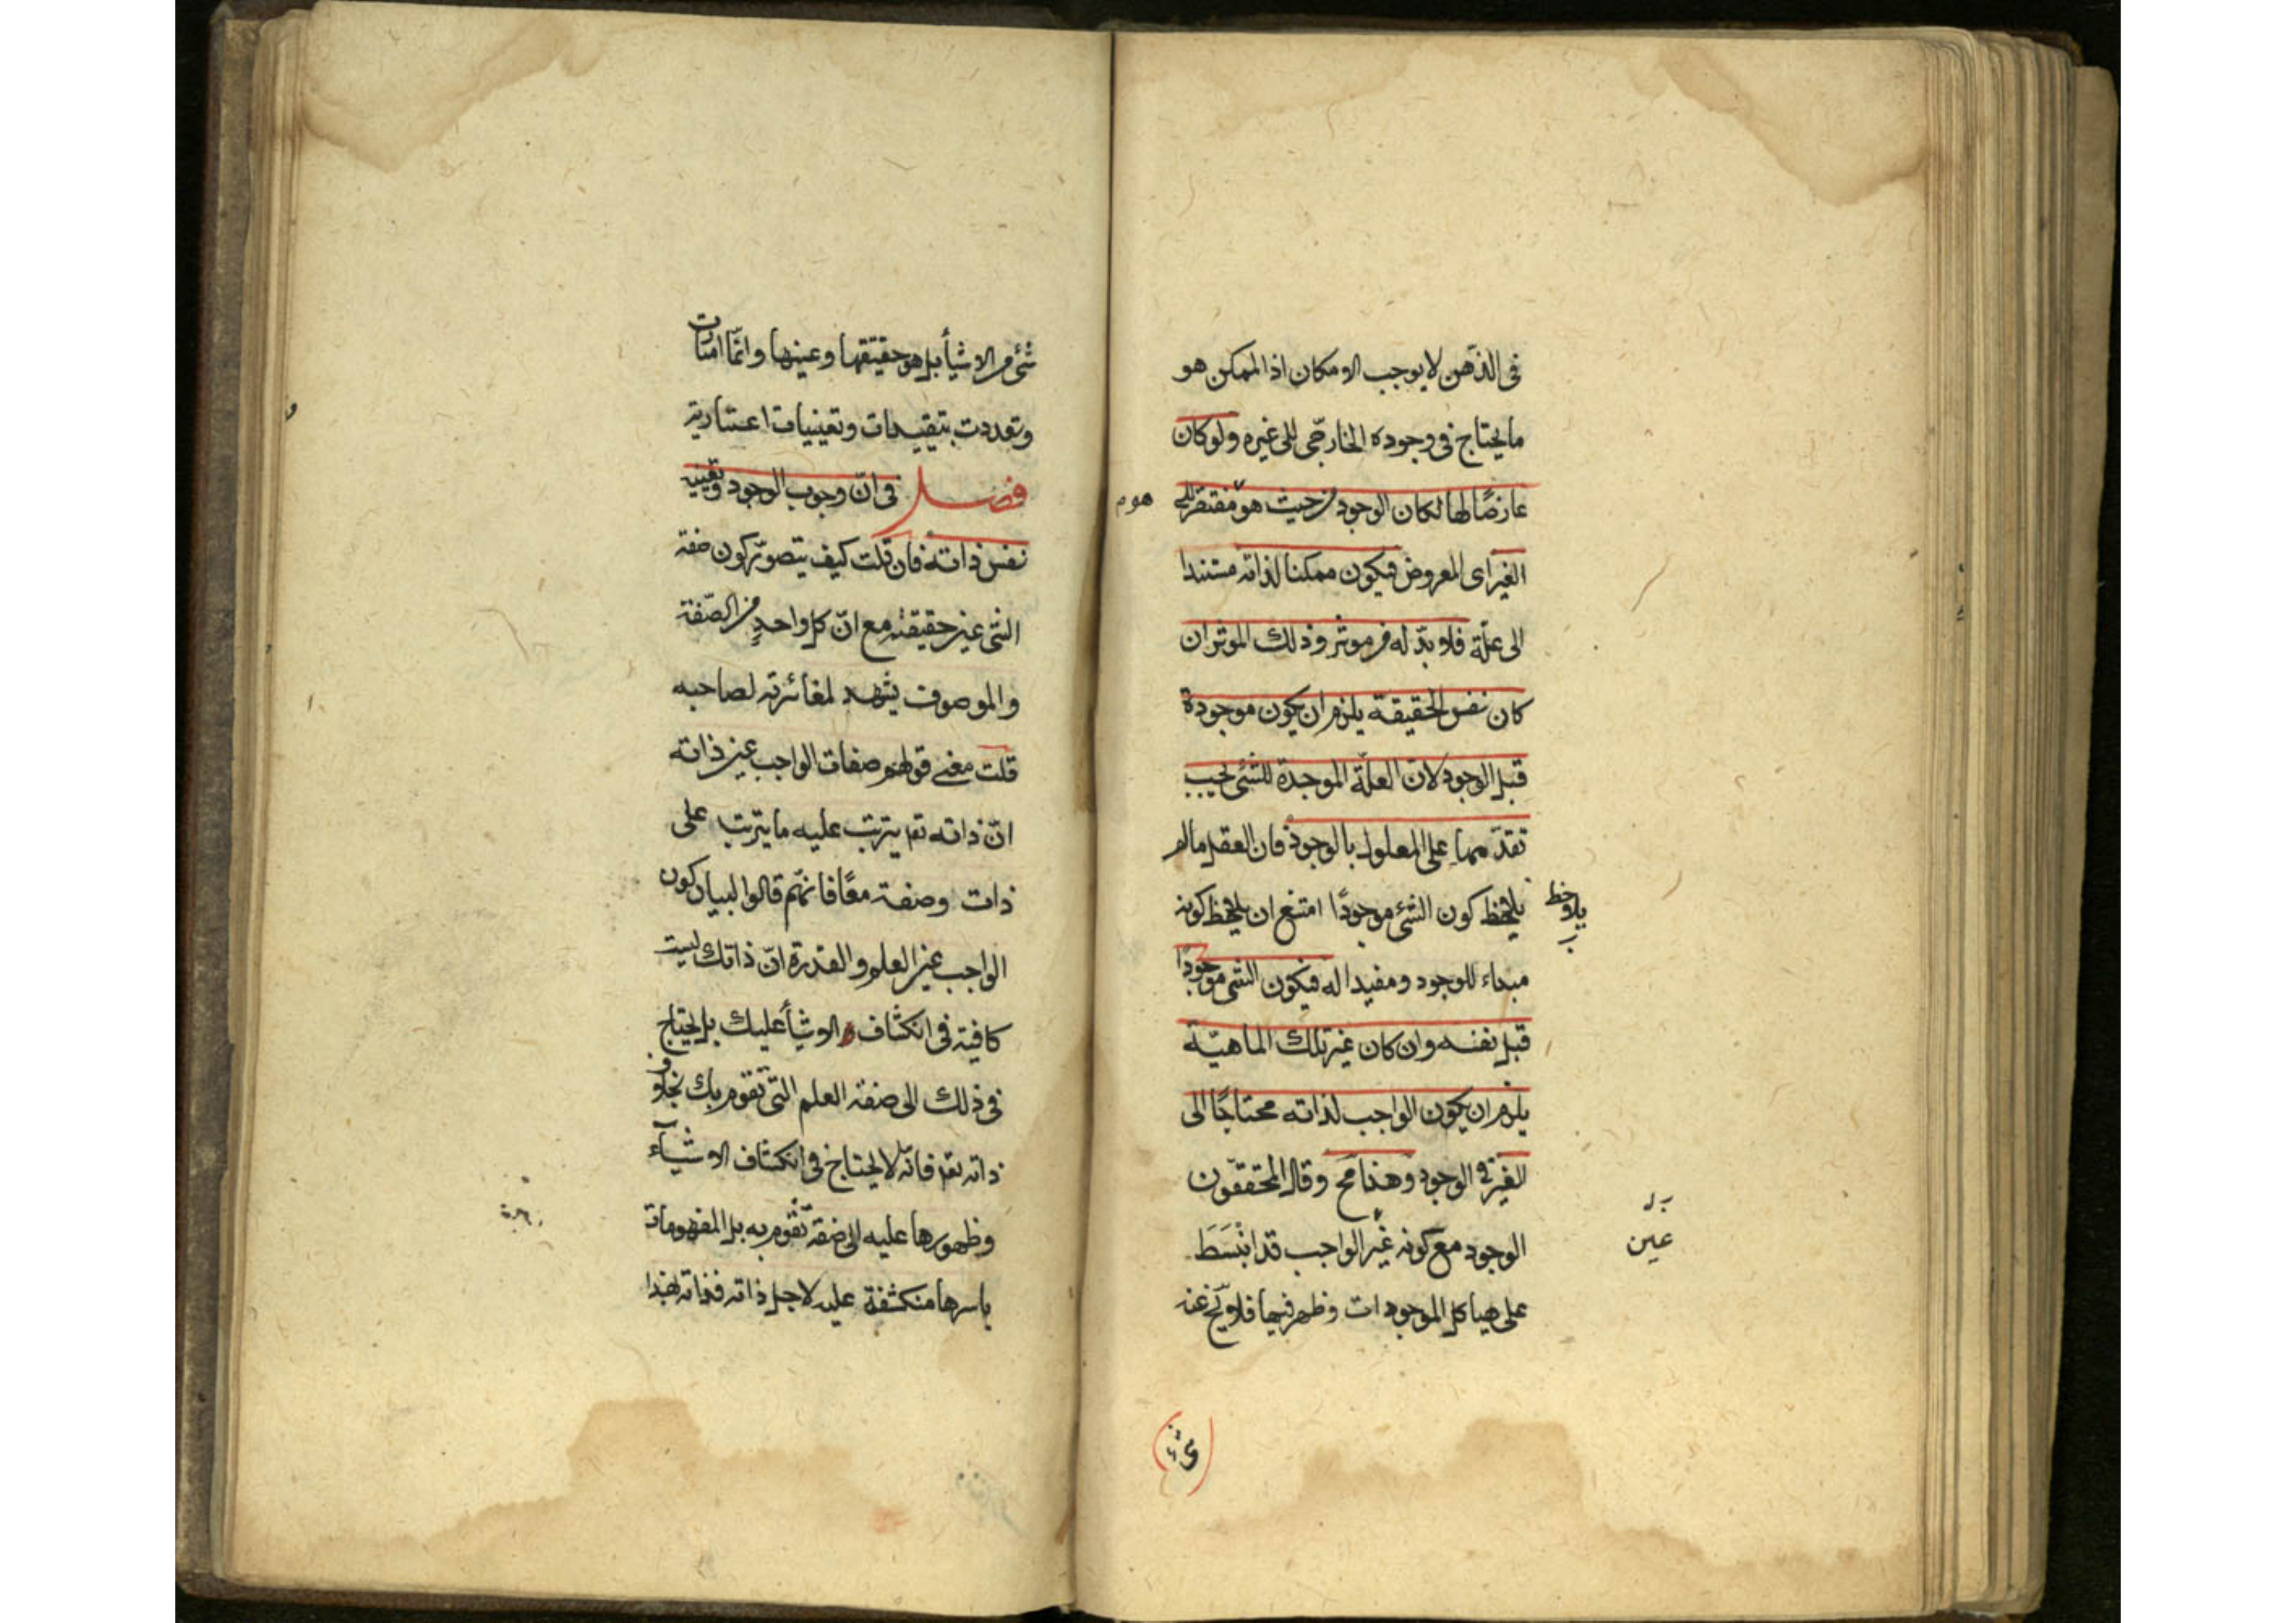 فى الذهن لا يوجب الامكان اذ الممكن هو
ما يحتاج فى وجوده الخارجى الى غيره ولو كان
عارضًا لها لكان الوجود من حيث هو مفتقر الى
هو م
الغير اى المعروض فيكون ممكنا لذاته مستندا
الى علّة فلا بدّ له من موثر وذلك الموثر ان
كان نفس الحقيقة يلزم ان يكون موجودة
قبل الوجود لان العلّة الموجدة للشئ يجب
تقدّمها على المعلول بالوجود فان العقل ما لم
يلحظ كون الشئ موجودًا امتنع ان يلحظ كونه
يلاحظ
مبداء للوجود ومفيدا له فيكون الشئ موجودًا
قبل نفسه وان كان غير تلك الماهيّة
يلزم ان يكون الواجب لذاته محتاجًا الى
الغير فى الوجود وهذا مح وقال المحققون
الوجود مع كونه غير الواجب قد انْبَسَطَ
بل
عين
على هياكل الموجودات وظهر فيها فلا يخ عنه
شئ من الاشيأ بل هو حقيقتها وعينها وانّما امتازت
وتعددت بتقييدات وتعينيات اعتبارية
فصل فى انّ وجوب الوجود وتعيينه
نفس ذاته فان قلت كيف يتصوّر كون صفة
الشئ عين حقيقته مع انّ كل واحدٍ من الصّفة
والموصوف يشهد لمغائرته لصاحبه
قلت معنى قولهم صفات الواجب عين ذاته
انّ ذاته تع يترتب عليه ما يترتب على
ذات وصفة معًا فانّهم قالوا لبيان كون
الواجب عين العلم والقدرة انّ ذاتك ليست
كافية فى انكشاف الاشيأ عليك بل يحتاج
فى ذلك الى صفة العلم التى تقوم بك بخلاف
ذاته تع فانّه لا يحتاج فى انكشاف الاشيآء
وظهورها عليه الى صفة تقوم به بل المفهومات
باسرها منكشفة عليه لاجل ذاته فذاته بهذا